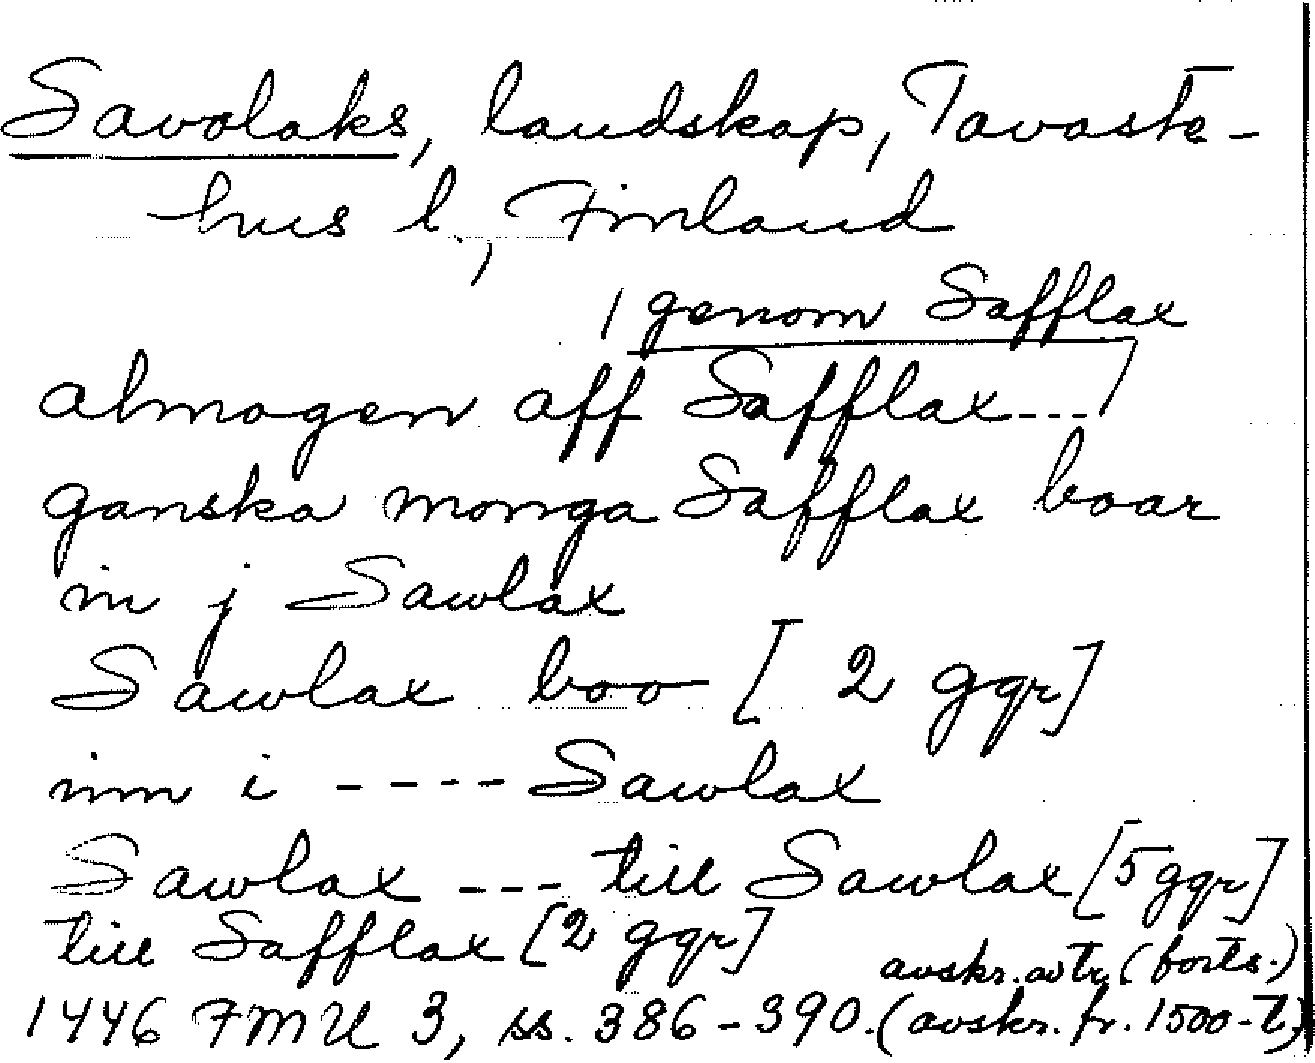 Savolaks, landskap, Tavaste-
hus l., Finland
/ genom Safflax
almogen aff Safflax---/
ganska monga Safflax boar
in j Sawlax
Sawlax boo [2 ggr]
inn i ---- Sawlax
Sawlax --- till Sawlax [5 ggr]
till Safflax [2 ggr]
avskr. (forts.)
1446 FMU 3, ss. 386-390. (avskr. fr. 1500-t.)